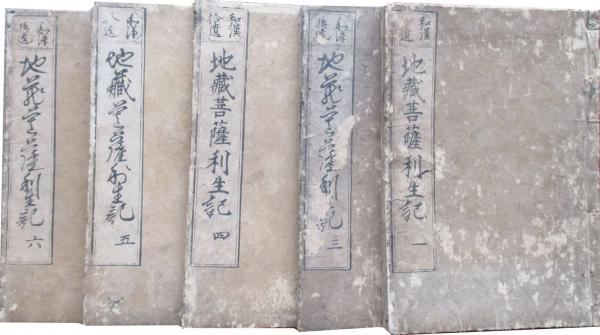 和漢
拾遺
地藏菩薩利生記 一
和漢
拾遺
地藏菩薩利生記 三
和漢
拾遺
地藏菩薩利生記 四
和漢
拾遺
地藏菩薩利生記 五
和漢
拾遺
地藏菩薩利生記 六